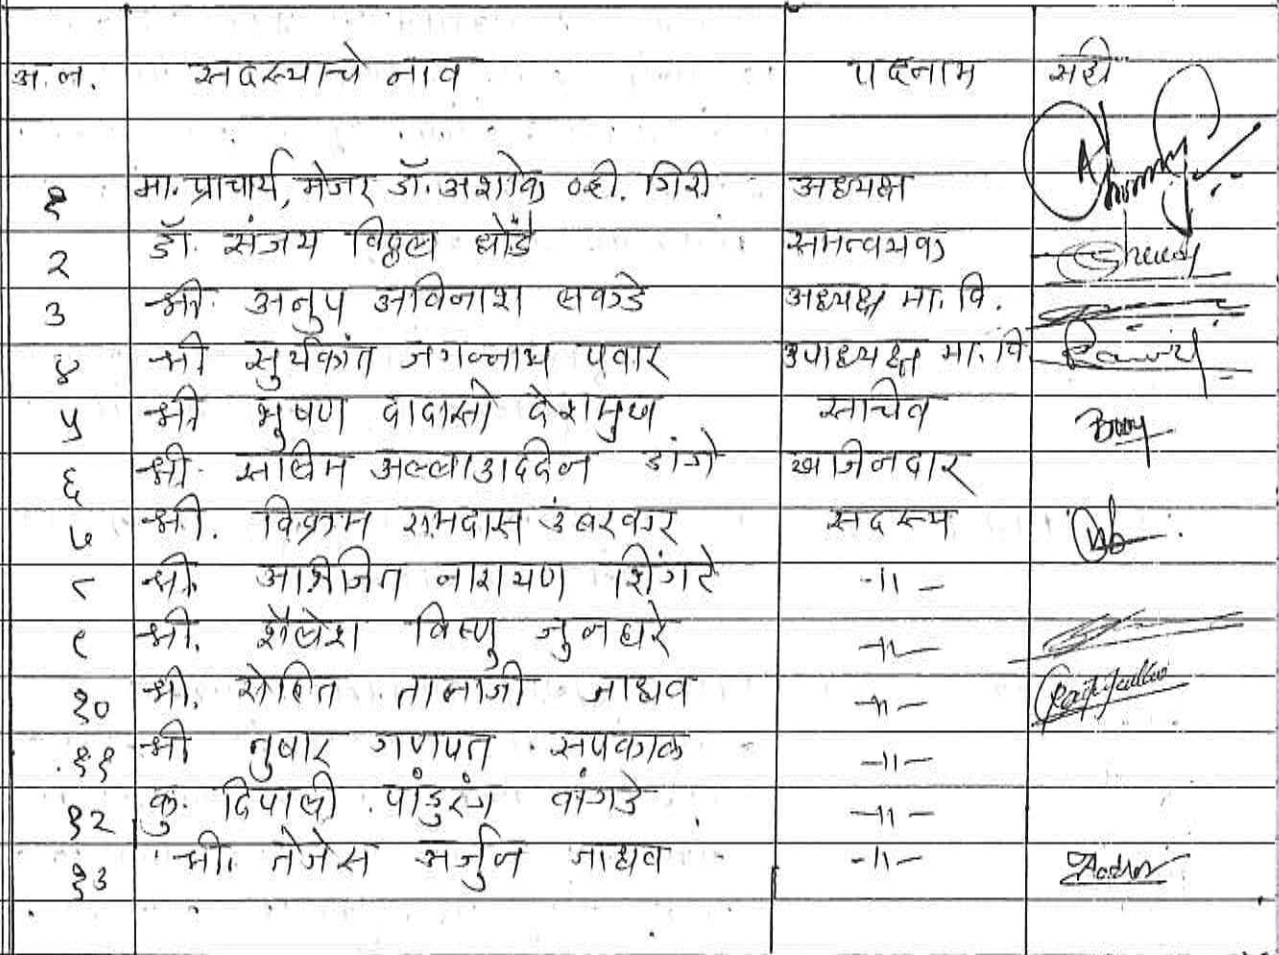 अ.न. सदस्याचे नाव पदनाम सही
१ मा. प्राचार्य, मेजर डॉ. अशोक व्ही. गिरी अध्यक्ष
२ डॉ. संजय विठ्ठल धोंडे समन्वयक
३ श्री. अनुप अविनाश सकडे अध्यक्ष मा. वि.
४ श्री सुर्यकांत जगन्नाथ पवार उपाध्यक्ष मा. वि
५ श्री भुषण दादासो देशमुख सचिव
६ श्री. सलिम अल्लाउददिन डांगे खजिनदार
७ श्री. विक्रम रामदास उंबरकर सदस्य
८ श्री. अभिजित नारायण शिंगटे -॥-
९ श्री. शैलेश विष्णु जुनघरे -॥-
१० श्री. रोहित तानाजी जाधव -॥-
११ श्री तुषार गणपत सपकाळ -॥-
१२ कु. दिपाली पांडुरंग वांगडे -॥-
१३ श्री. तेजेस अर्जुन जाधव -॥-